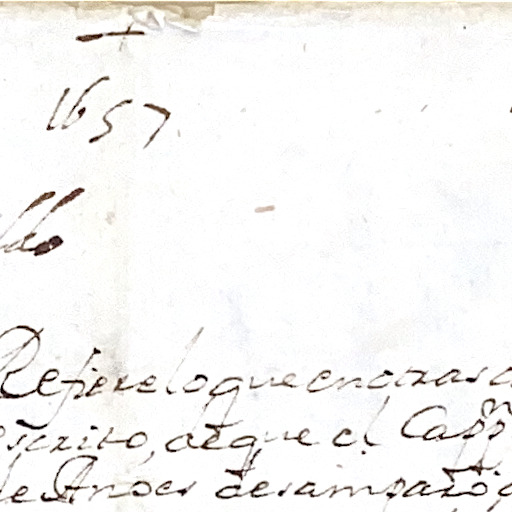 1657
Refiere lo que en otras
escrito, de que el Capp.n
de Anoes desamparó